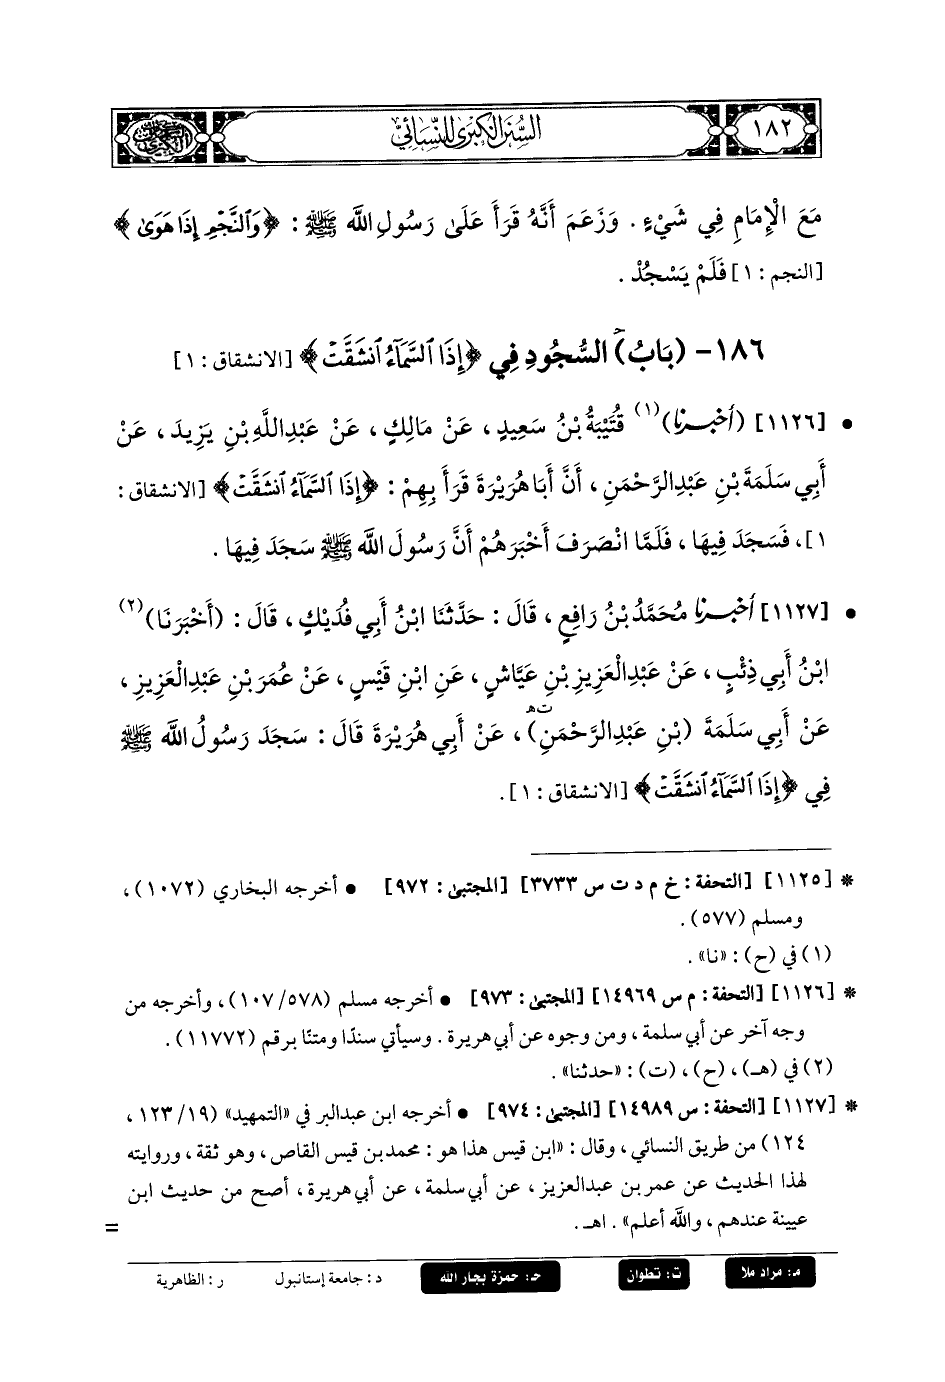 ١٨٢
السُّنَنُ الكُبْرَى لِلنَّسَائِيِّ
مَعَ الْإِمَامِ فِي شَيْءٍ . وَزَعَمَ أَنَّهُ قَرَأَ عَلَىٰ رَسُولِ اللَّه ﷺ : ﴿وَٱلنَّجْمِ إِذَا هَوَىٰ﴾
[النجم : ١] فَلَمْ يَسْجُدْ .
١٨٦- (بَابُ) السُّجُودِ فِي ﴿إِذَا ٱلسَّمَآءُ ٱنشَقَّتْ﴾ [الانشقاق : ١]
• [١١٢٦] (أَخْبَرَنَا)(١) قُتَيْبَةُ بْنُ سَعِيدٍ ، عَنْ مَالِكٍ ، عَنْ عَبْدِاللَّهِ بْنِ يَزِيدَ ، عَنْ
أَبِي سَلَمَةَ بْنِ عَبْدِالرَّحْمَنِ ، أَنَّ أَبَا هُرَيْرَةَ قَرَأَ بِهِمْ : ﴿إِذَا ٱلسَّمَآءُ ٱنشَقَّتْ﴾ [الانشقاق :
١]، فَسَجَدَ فِيهَا ، فَلَمَّا انْصَرَفَ أَخْبَرَهُمْ أَنَّ رَسُولَ اللَّه ﷺ سَجَدَ فِيهَا .
• [١١٢٧] أَخْبَرَنَا مُحَمَّدُ بْنُ رَافِعٍ ، قَالَ : حَدَّثَنَا ابْنُ أَبِي فُدَيْكٍ ، قَالَ : (أَخْبَرَنَا)(٢)
ابْنُ أَبِي ذِئْبٍ ، عَنْ عَبْدِالْعَزِيزِ بْنِ عَيَّاشٍ ، عَنِ ابْنِ قَيْسٍ ، عَنْ عُمَرَ بْنِ عَبْدِالْعَزِيزِ ،
عَنْ أَبِي سَلَمَةَ (بْنِ عَبْدِالرَّحْمَنِ) ، عَنْ أَبِي هُرَيْرَةَ قَالَ : سَجَدَ رَسُولُ اللَّه ﷺ
فِي ﴿إِذَا ٱلسَّمَآءُ ٱنشَقَّتْ﴾ [الانشقاق : ١] .
* [١١٢٥] [التحفة : خ م د ت س ٣٧٣٣] [المجتبىٰ : ٩٧٢] • أخرجه البخاري (١٠٧٢) ،
ومسلم (٥٧٧) .
(١) في (ح) : «نا» .
* [١١٢٦] [التحفة : م س ١٤٩٦٩] [المجتبىٰ : ٩٧٣] • أخرجه مسلم (٥٧٨/ ١٠٧) ، وأخرجه من
وجه آخر عن أبي سلمة ، ومن وجوه عن أبي هريرة . وسيأتي سندًا ومتنًا برقم (١١٧٧٢) .
(٢) في (هـ) ، (ح) ، (ت) : «حدثنا» .
* [١١٢٧] [التحفة : س ١٤٩٨٩] [المجتبىٰ : ٩٧٤] • أخرجه ابن عبدالبر في «التمهيد» (١٩/ ١٢٣ ،
١٢٤) من طريق النسائي ، وقال : «ابن قيس هذا هو : محمد بن قيس القاص ، وهو ثقة ، وروايته
لهذا الحديث عن عمر بن عبدالعزيز ، عن أبي سلمة ، عن أبي هريرة ، أصح من حديث ابن
عيينة عندهم ، واللَّه أعلم» . اهـ . =
مـ: مراد ملا ت: تطوان حـ: حمزة بجار الله د: جامعة إستانبول ر: الظاهرية